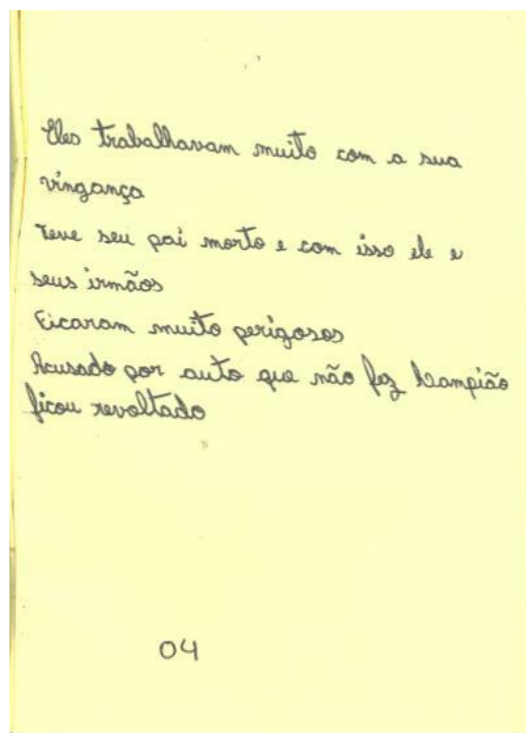 Eles trabalhavam muito com a sua
vingança
Teve seu pai morto e com isso ele e
seus irmãos
Ficaram muito perigosos
Acusado por auto que não fez Lampião
ficou revoltado
04